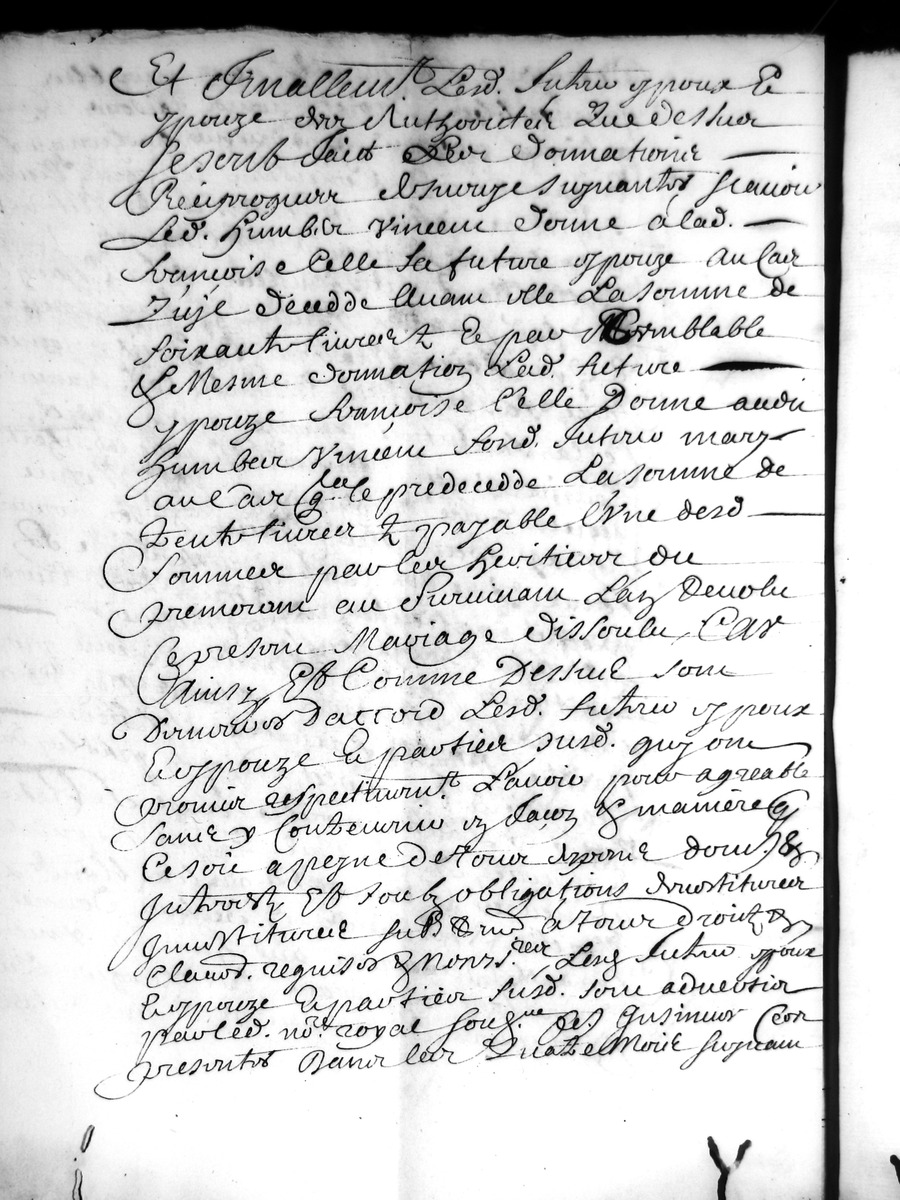 Et Finallem.t Lesd. futru espoux Et
espouze des Authoritez Que dessus
se sont faict Les donnations
Reciproques et survye suyvantes scavoir
Led. Humber Vincent donne a lad.
francoise Celle sa future espouze au Cas
decedde Avant elle La somme de
soixante livres Et par semblable
& Mesme donnation Lad. future
espouze francoise Celle Donne audit
Humber Vincent sond. futru mary
au Cas q. le predecedde La somme de
trente livres payable L'Une desd
sommes par les heritiers du
premorant au survivant L'an Revolu
Ce present Mariage dissoulu, Car
Ainsy Est Comme Dessus sont
Demeures D'accord Lesd. futru espoux
Et espouze Et parties susd. quy ont
promis respectivem.t L'avoir pour agreable
sans y Contrevenir en facon & maniere q
Ce soit a peyne de tous despens dom. &
Interestz Et soubz obligations
sub. & a tous droitz &
Claus. requises & Lesd futru espoux
Et espouze Et parties susd. sont advertis
par led. no.re royal soug.ne des Insinuer Ces
presentes dans les Quatre Mois suyvant